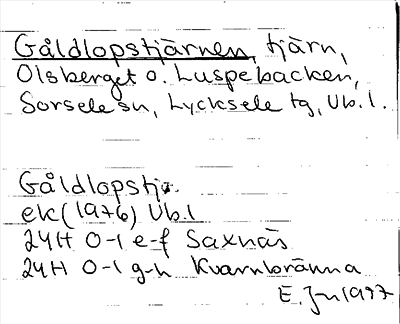 Gåldlopstjärnen, tjärn,
Olsberget o. Luspebacken,
Sorsele sn, Lycksele tg, Vb.l.
Gåldlopstj.
ek (1976) Vb.l
24H 0-1 e-f Saxnäs
24H 0-1 g-h Kvarnbränna
E. 1997